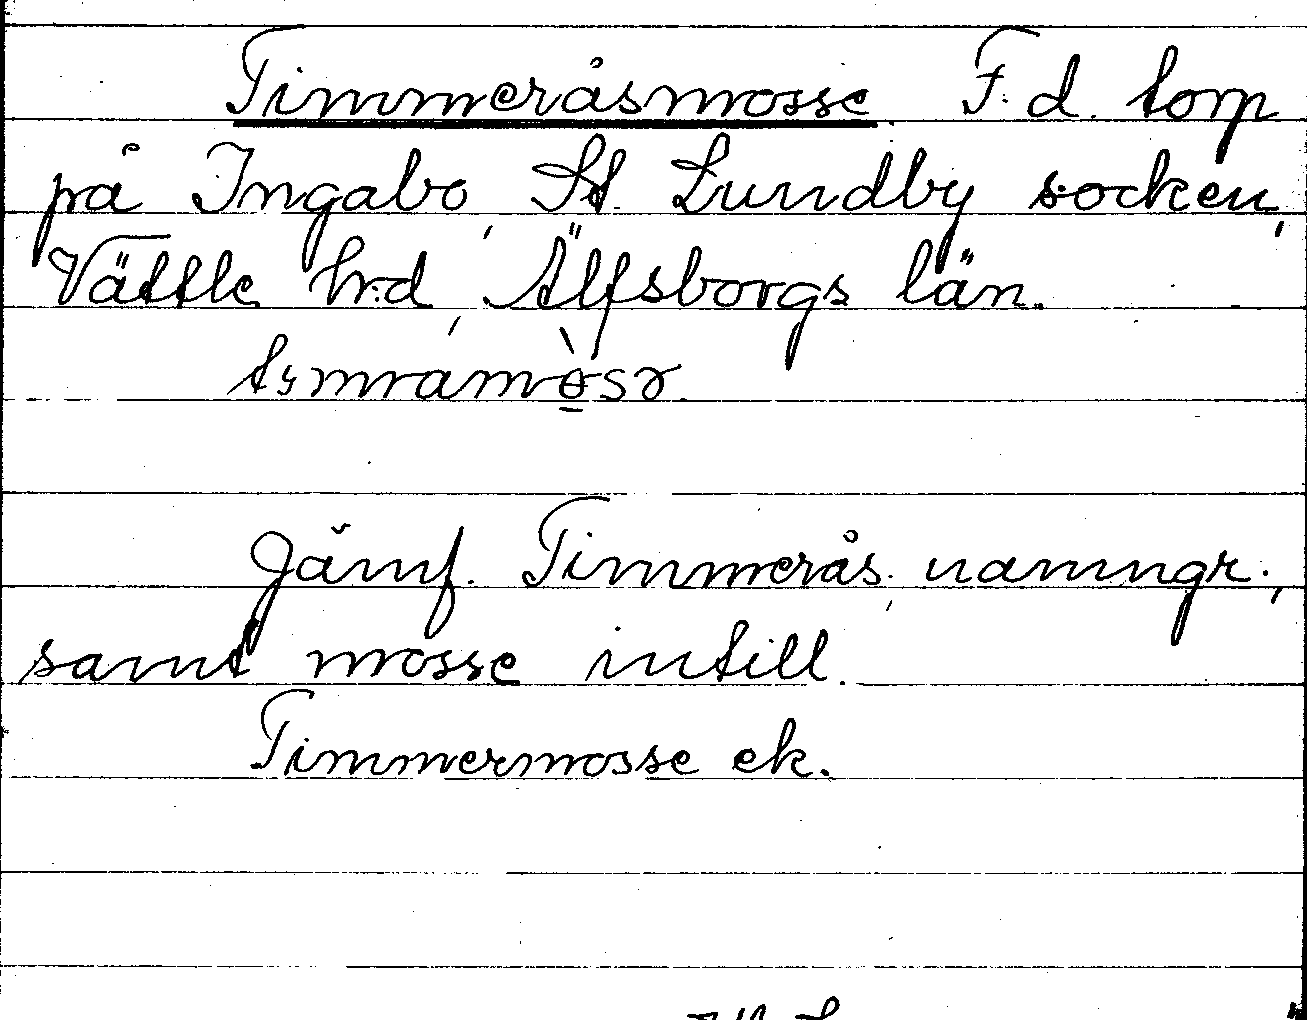 Timmeråsmosse. F. d. torp
på Ingabo, St. Lundby socken,
Vättle h:d, Älfsborgs län.
Jämf. Timmerås, namngr.,
samt mosse intill.
Timmermosse ek.